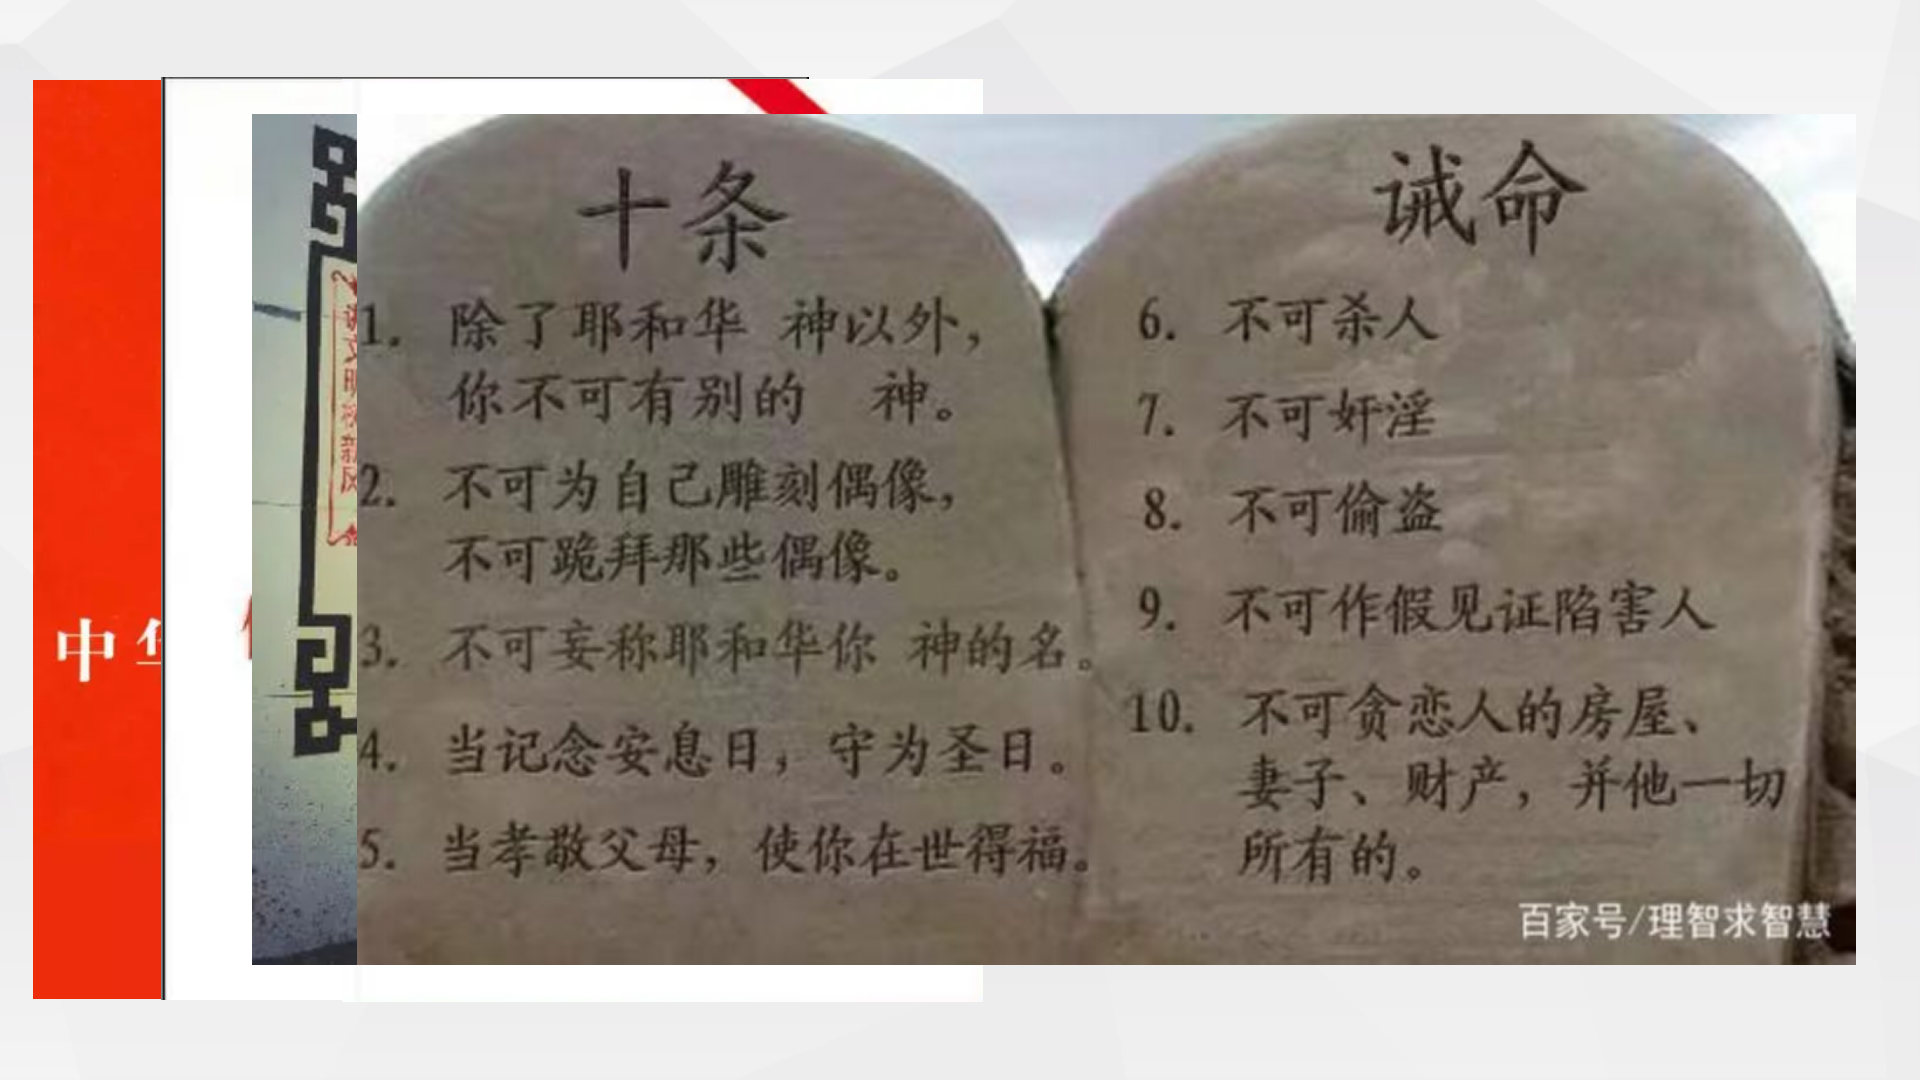 中华
讲文明树新风
十条
1. 除了耶和华 神以外，
你不可有别的 神。
2. 不可为自己雕刻偶像，
不可跪拜那些偶像。
3. 不可妄称耶和华你 神的名。
4. 当记念安息日，守为圣日。
5. 当孝敬父母，使你在世得福。
诫命
6. 不可杀人
7. 不可奸淫
8. 不可偷盗
9. 不可作假见证陷害人
10. 不可贪恋人的房屋、
妻子、财产，并他一切
所有的。
百家号/理智求智慧